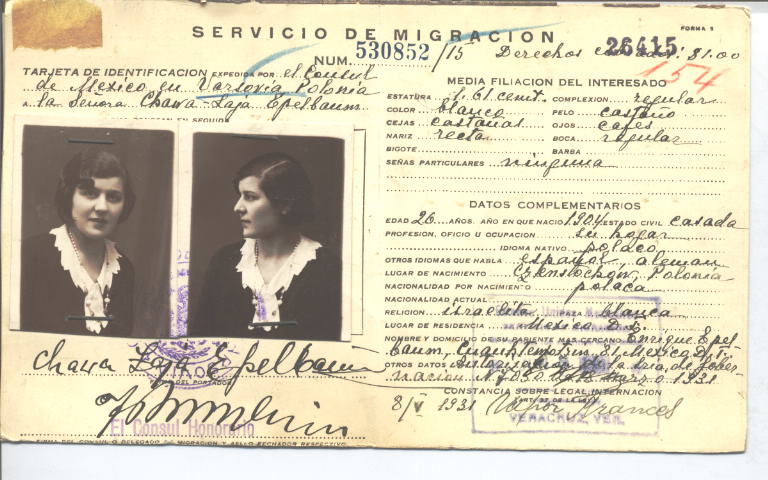 SERVICIO DE MIGRACION
FORMA 5
NUM. 530852/15 Derechos 31.00
26415
154
TARJETA DE IDENTIFICACION EXPEDIDA POR el Consul
de Mexico en Varsovia, Polonia
A la Señora Chawa Laja Epelbaum
MEDIA FILIACION DEL INTERESADO
ESTATURA 1.61 cent. COMPLEXION regular
COLOR blanco PELO castaño
CEJAS castañas OJOS cafes
NARIZ recta BOCA regular
BIGOTE BARBA
SEÑAS PARTICULARES ninguna
DATOS COMPLEMENTARIOS
EDAD 26 AÑOS. AÑO EN QUE NACIO 1904 ESTADO CIVIL casada
PROFESION, OFICIO U OCUPACION su hogar
IDIOMA NATIVO polaco
OTROS IDIOMAS QUE HABLA español, aleman
LUGAR DE NACIMIENTO Czenstochow, Polonia
NACIONALIDAD POR NACIMIENTO polaca
NACIONALIDAD ACTUAL
RELIGION israelita RAZA blanca
LUGAR DE RESIDENCIA Mexico
NOMBRE Y DOMICILIO DE SU PARIENTE MAS CERCANO Enrique Epel
baum, 31, Mexico D.F.
OTROS DATOS Autorizacion de la Sria. de Gober
nacion N. 7030 marzo 1931
CONSTANCIA SOBRE LEGAL INTERNACION
8/V 1931 Vapor
VERACRUZ, VER.
Chawa Laja Epelbaum
FIRMA DEL PORTADOR
El Consul Honorario
FIRMA DEL CONSUL O DELEGADO DE MIGRACION Y SELLO FECHADOR RESPECTIVO